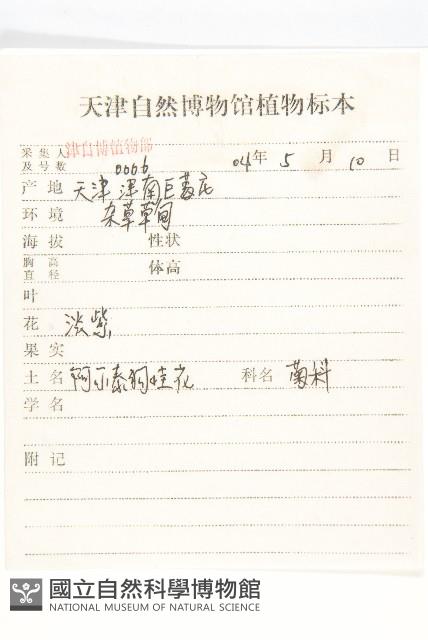 天津自然博物馆植物标本
采集人
及号数 津自博植物部 0066 04年 5 月 10 日
产地 天津 津南巨葛庄
环境 杂草草甸
海拔 性状
胸高
直径 体高
叶
花 淡紫
果实
土名 阿尔泰狗娃花 科名 菊科
学名
附记
國立自然科學博物館
NATIONAL MUSEUM OF NATURAL SCIENCE